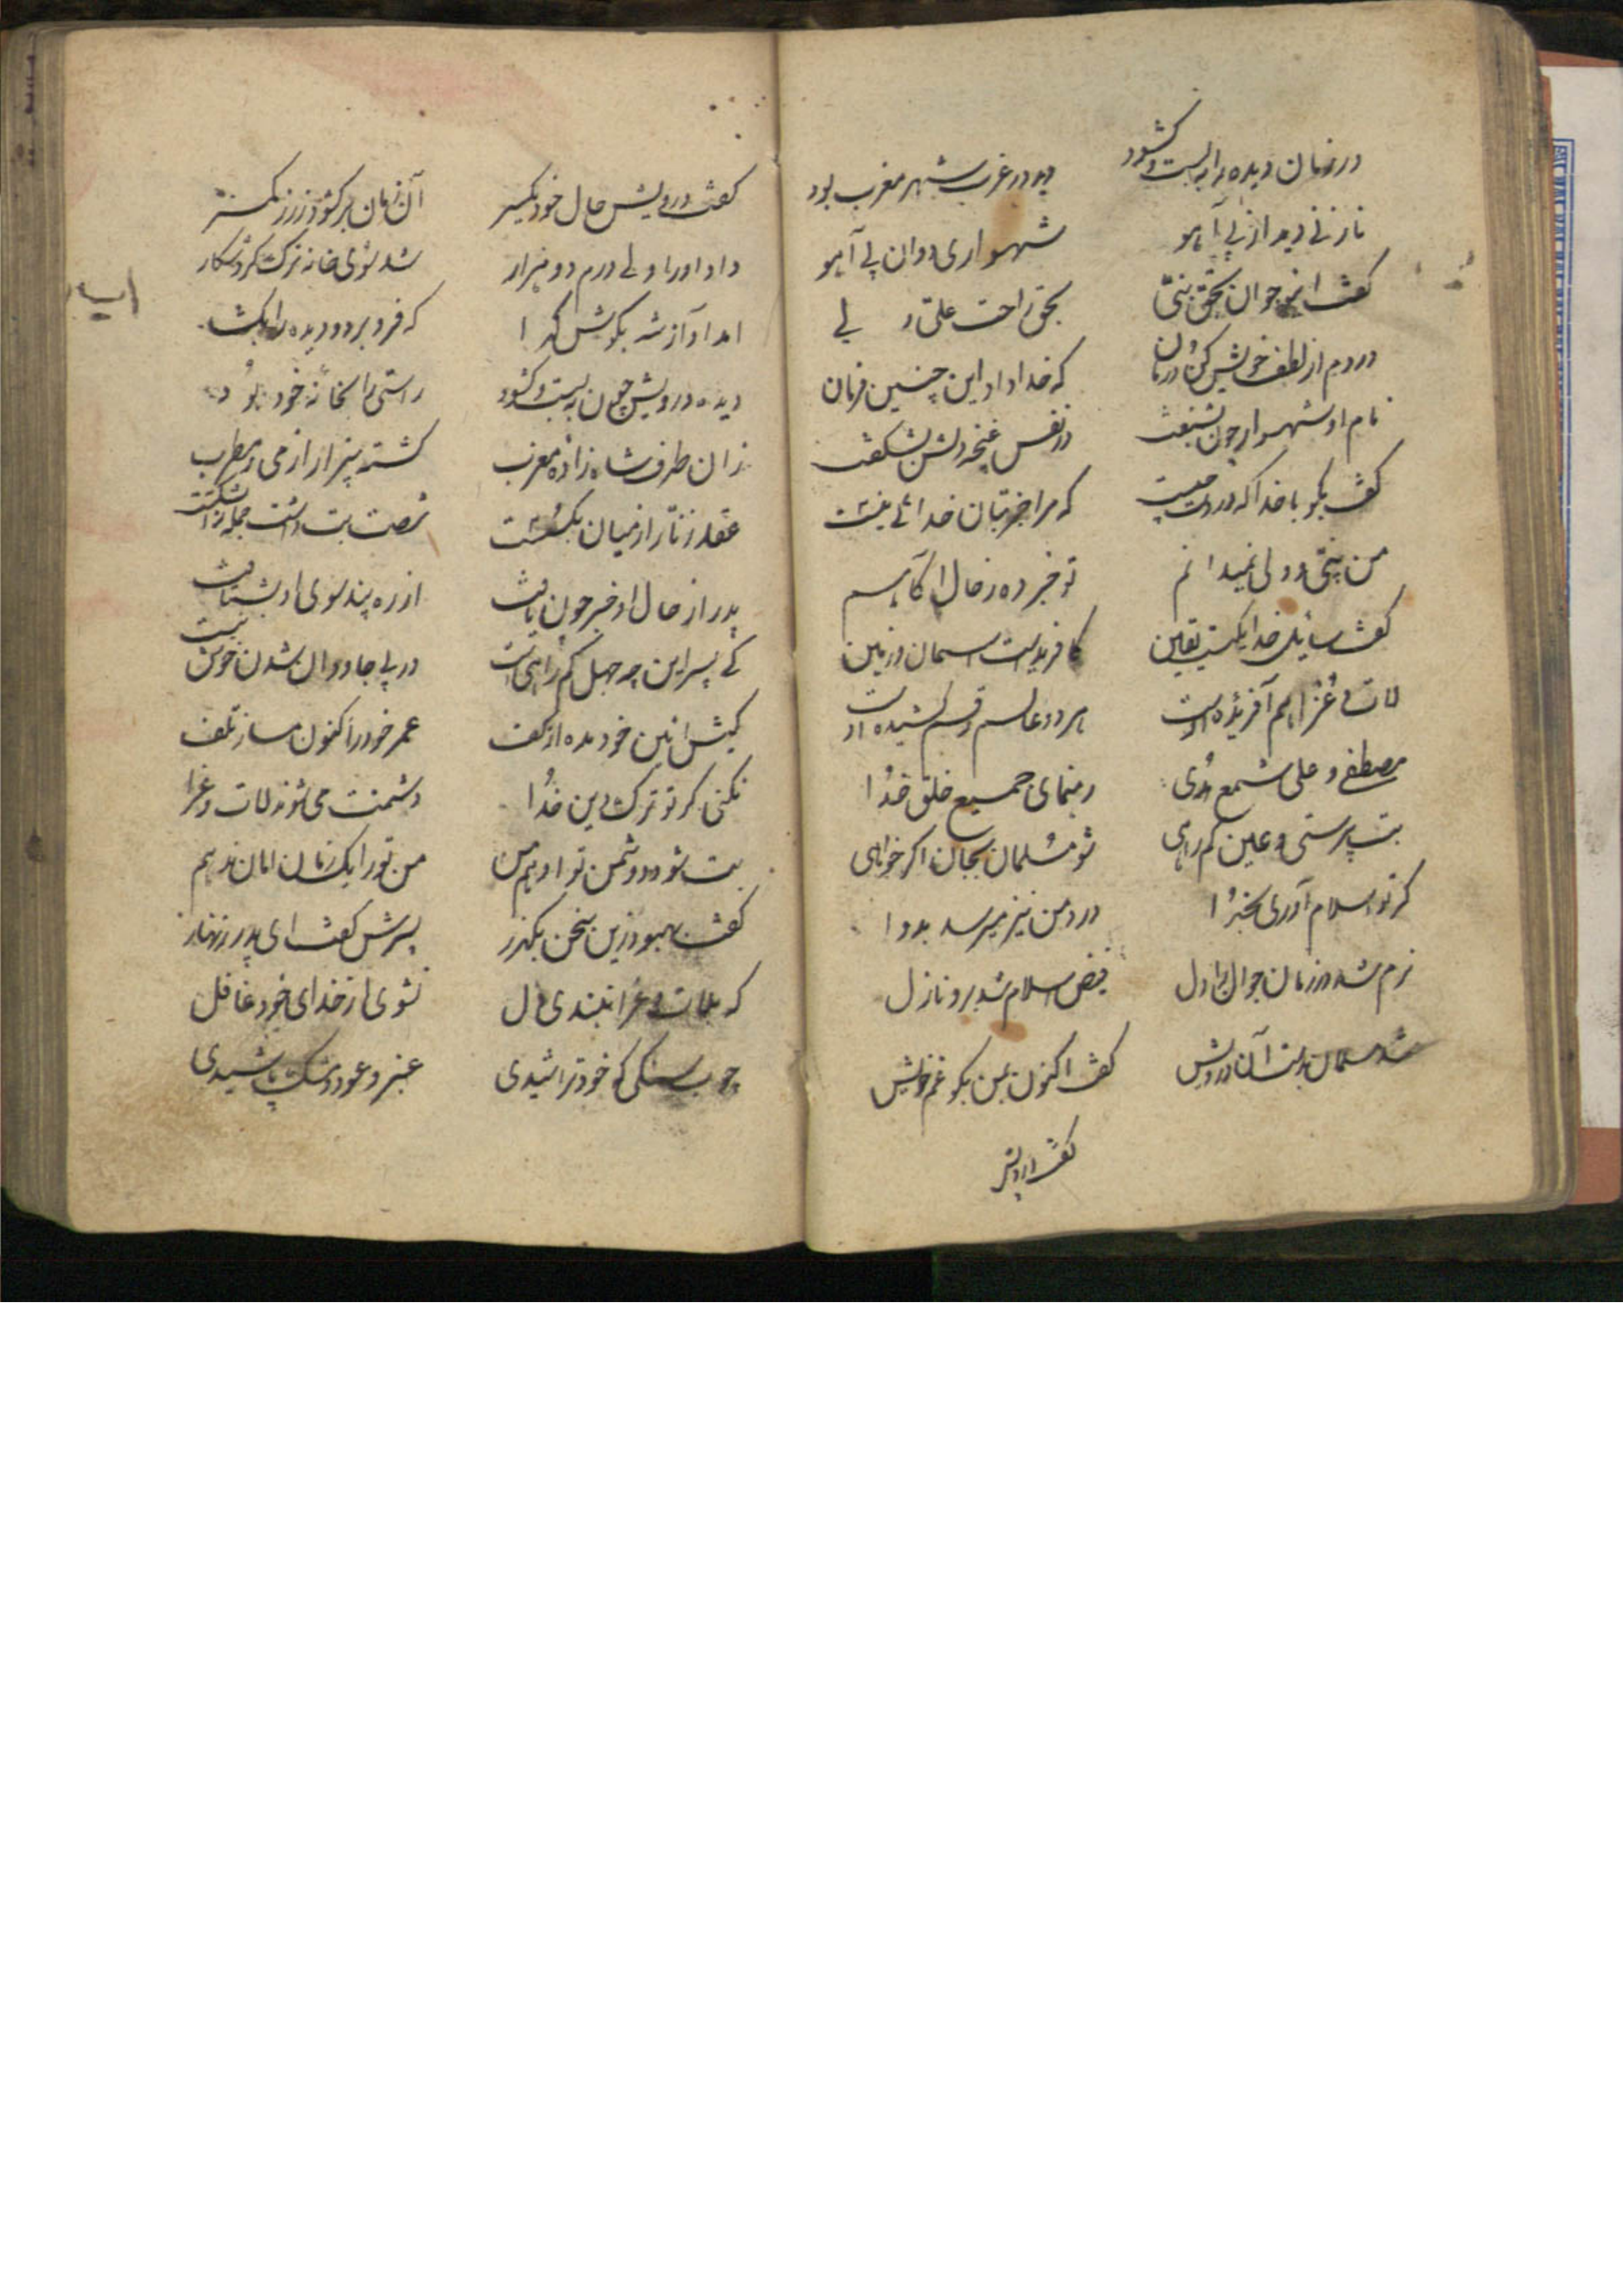 در زمان دیده را به بست و کشود
دید در غرب شهر مغرب بود
نازنی دید از پی آهو
شهسواری دوان پی آهو
کفت ای جوان بحق نبی
بحق راحت علی ولی
دردم از لطف خویش کن درمان
که خدا داد این چنین فرمان
نام او شهسوار چون بشنفت
در نفس غنچه دلش بشکفت
کفت بکو با خدا که در دست چیست
که مرا جز بتان خدائی نیست
من بتی دو ولی نمیدانم
تو خبر ده ز حال اکاهم
کفت سائل خدا یکیست یقین
کافریدست اسمان و زمین
لات و عزا هم آفریده اوست
هر دو عالم رقم کشیده اوست
مصطفی و علی شمع هدی
رهنمای جمیع خلق خدا
بت پرستی و عین کم راهی
شو مسلمان بجان اکر خواهی
کر تو اسلام آوری بخدا
درد من نیز میرسد بدوا
نرم شد در زمان جوان را دل
فیض اسلام شد برو نازل
شد مسلمان بدست آن درویش
کفت اکنون بمن بکو غم خویش
کفت درویش
کفت درویش حال خود یکسر
آن زمان بر کشود زر ز کمر
داد او را ولی درم دو هزار
شد سوی خانه ترک کرد شکار
امد آواز شه بکوش کدا
که فرو بر دو دیده را بکشا
دیده درویش چون به بست و کشود
راستی را بخانه خود بود
زان طرف شاه زاده مغرب
کشته بیزار از می و مطرب
عقد زنار از میان بکسست
شصت بت داشت جمله را بشکست
پدر از حال او خبر چون یافت
از ره پند سوی او بشتافت
کی پسر این چه جهل کم راهی است
در پی جادوان شدن خوش نیست
کیش ائین خود مده از کف
عمر خود را کنون مساز تلف
نکنی کر تو ترک دین خدا
دشمنت می شوند لات و عزا
بت شود دشمن تو او هم من
من تو را یک زمان امان ندهم
کفت بهبود زین سخن بکذر
پسرش کفت ای پدر زنهار
که بلات و عزا نبندی دل
نشوی از خدای خود غافل
چوب سنکی که خود تراشیدی
عنبر و عود و مشک پاشیدی